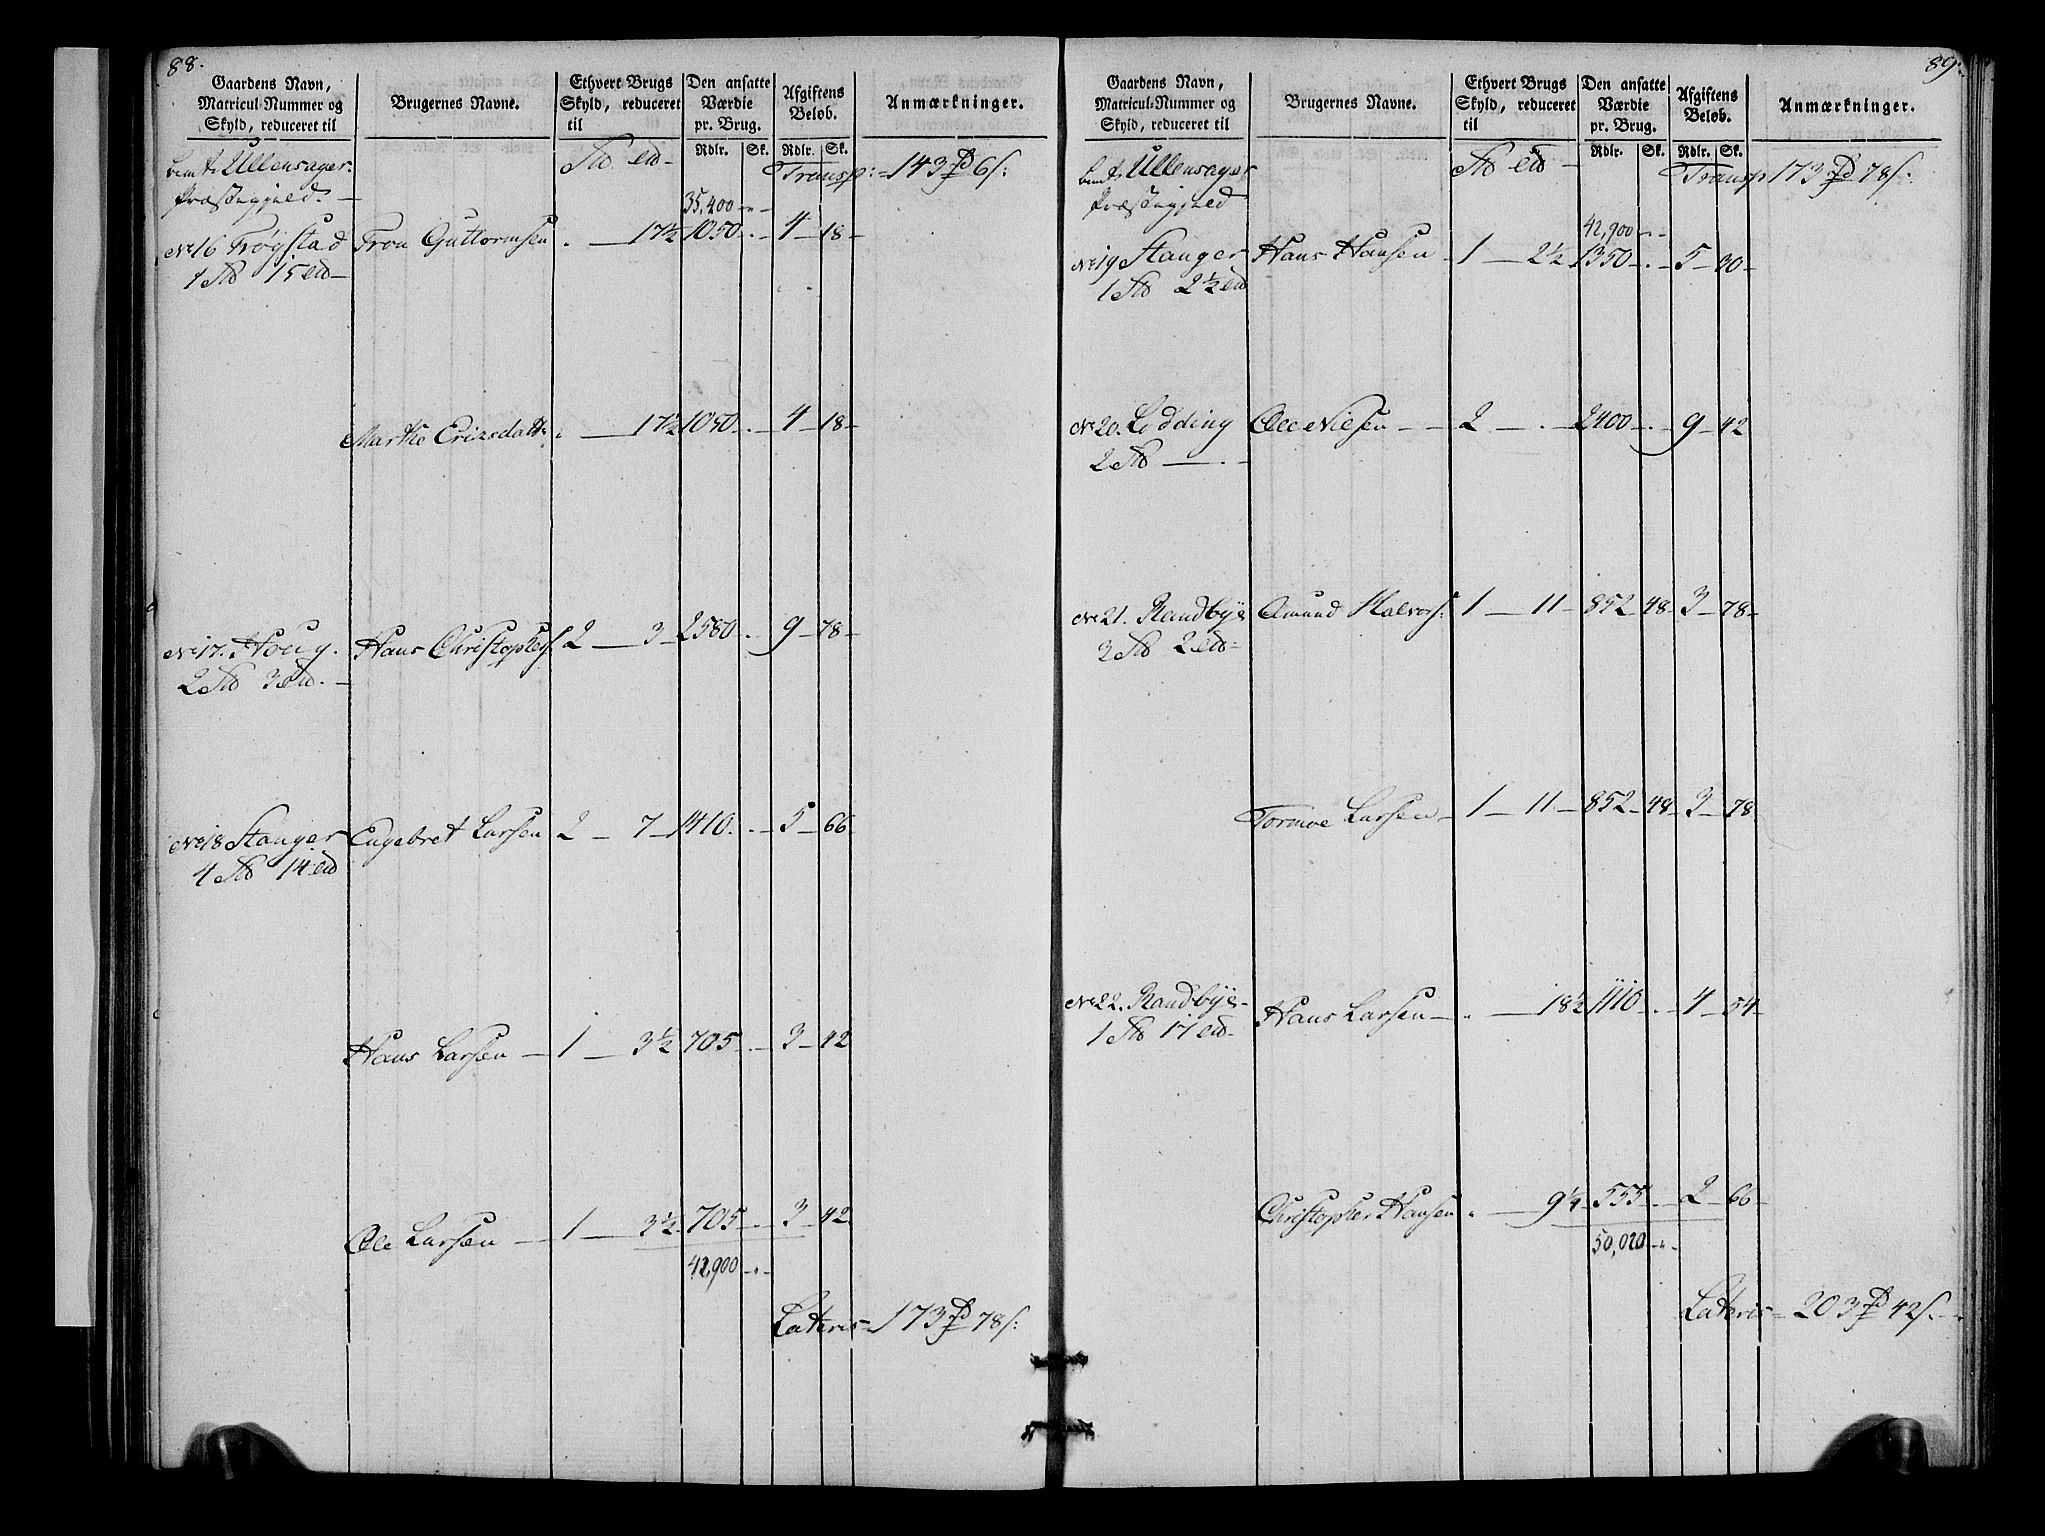 88.
Gaardens Navn, Matricul-Nummer og Skyld, reduceret til
Brugernes Navne.
Ethvert Brugs Skyld, reduceret til
Den ansatte Værdie pr. Brug.
Afgiftens Beløb.
Anmærkninger.
Rdlr. Sk. Rdlr. Sk.
Ullensager Transp: 143 6 s:
Præstegjeld
35,400
No 16 Frøgstad Tron Guttormsen 17½ 1050 4 18
1 15
Marthe Ericsdatt: 17½ 1050 4 18
No 17. Houg. Hans Christophers 2 3 2580 9 78
2 3
No 18 Stanger Engebret Larsen 2 7 1410 5 66
4 14
Hans Larsen 1 3½ 705 2 42
Ole Larsen 1 3½ 705 2 42
42,900
Lateris 173 78 s:
89.
Gaardens Navn, Matricul-Nummer og Skyld, reduceret til
Brugernes Navne.
Ethvert Brugs Skyld, reduceret til
Den ansatte Værdie pr. Brug.
Afgiftens Beløb.
Anmærkninger.
Rdlr. Sk. Rdlr. Sk.
Ullensager Transp 173 78 s.
Præstegjeld
42,900
No 19 Stanger Hans Hansen 1 2½ 1350 5 30
1 2½
No 20. Lødding Ole Nilsen 2 2400 9 42
2
No 21. Randbye Amund Halvors: 1 11 852 48 3 78
3 2
Tormoe Larsen 1 11 852 48 3 78
No 22. Randbye Hans Larsen 18½ 1110 4 54
1 17
Christopher Hansen 9¼ 555 2 66
50,020
Lateris 203 42 s.